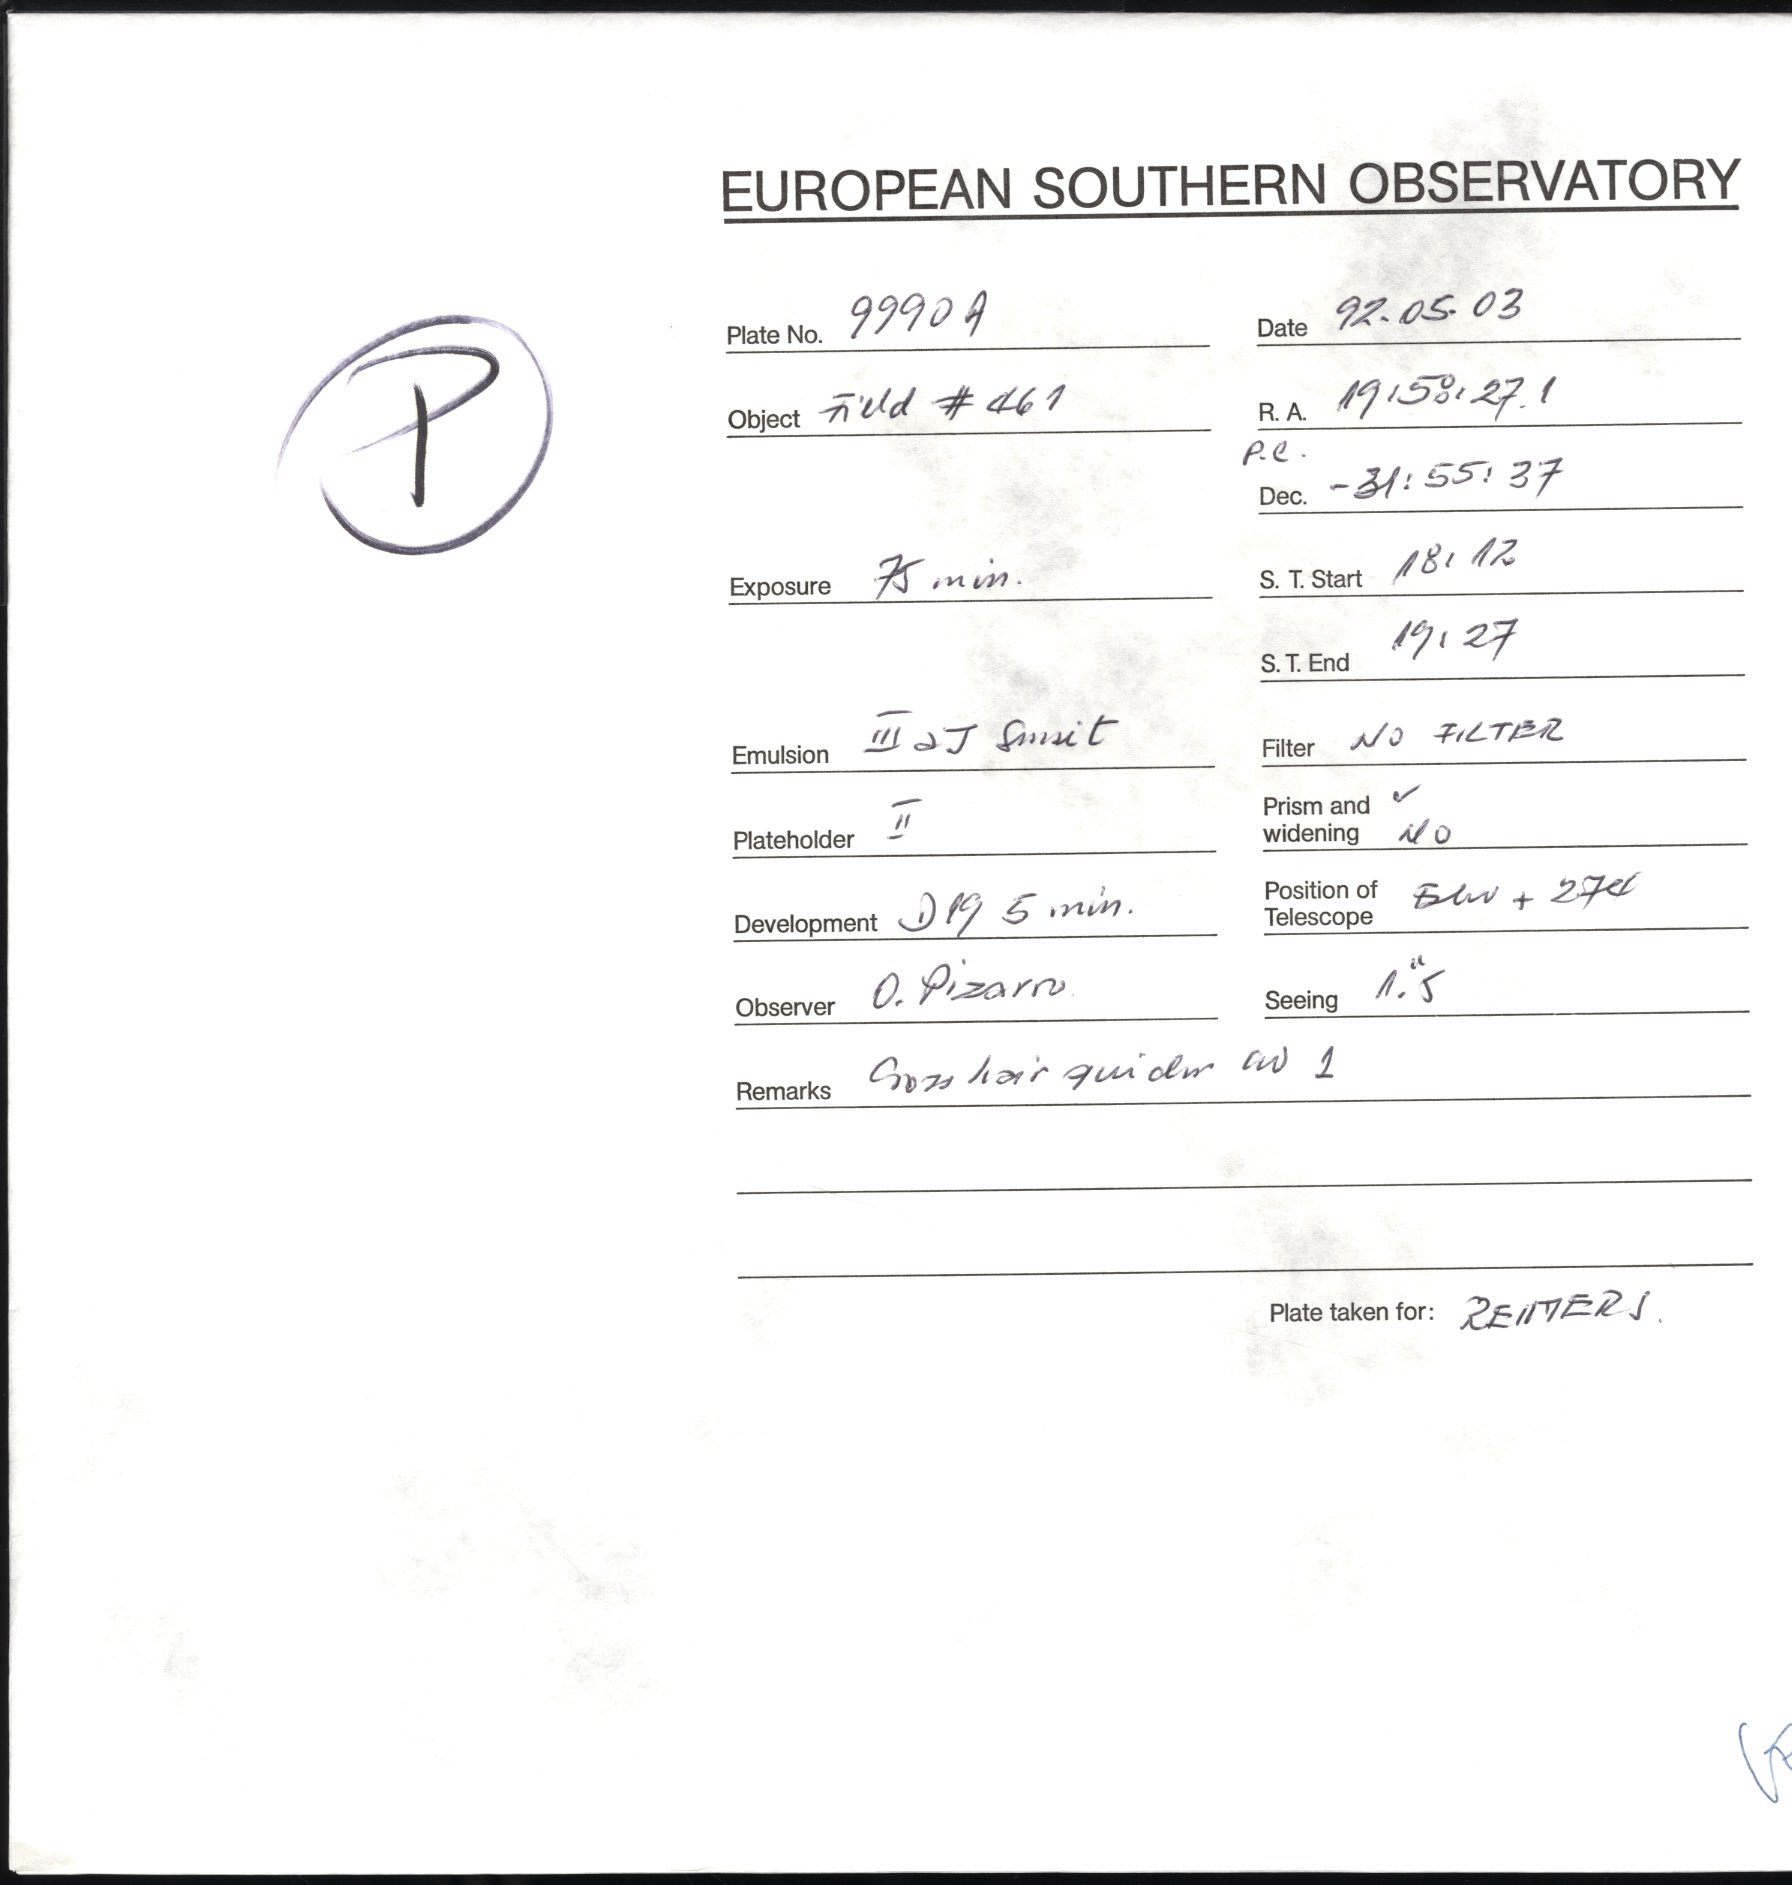 EUROPEAN SOUTHERN OBSERVATORY
P
Plate No. 9990 A
Date 92.05.03
Object Field # 461
R. A. 19:58:27.1
P.C.
Dec. -31:55:37
Exposure 75 min.
S. T. Start 18:12
S. T. End 19:27
Emulsion III aJ
Filter NO FILTER
Plateholder II
Prism and ✓
widening NO
Development D19 5 min.
Position of
Telescope + 274
Observer O. Pizarro
Seeing 1."5
Remarks Cross hair guider 1
Plate taken for: